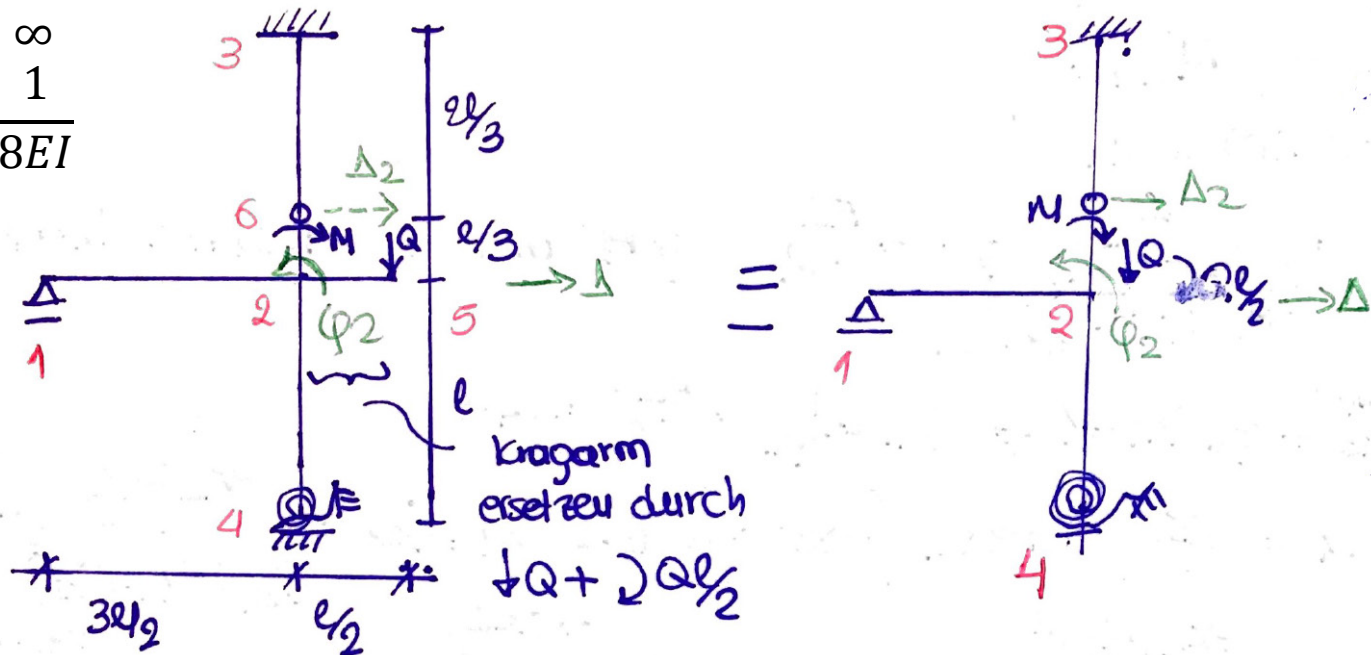 ∞
1
8EI
3
2l/3
Δ2
6
M
Q
l/3
Δ
2
φ2
5
1
l
Kragarm
ersetzen durch
↓Q + Ql/2
4
3l/2
l/2
=
3
Δ2
M
Q
l/2
Δ
1
2
φ2
4